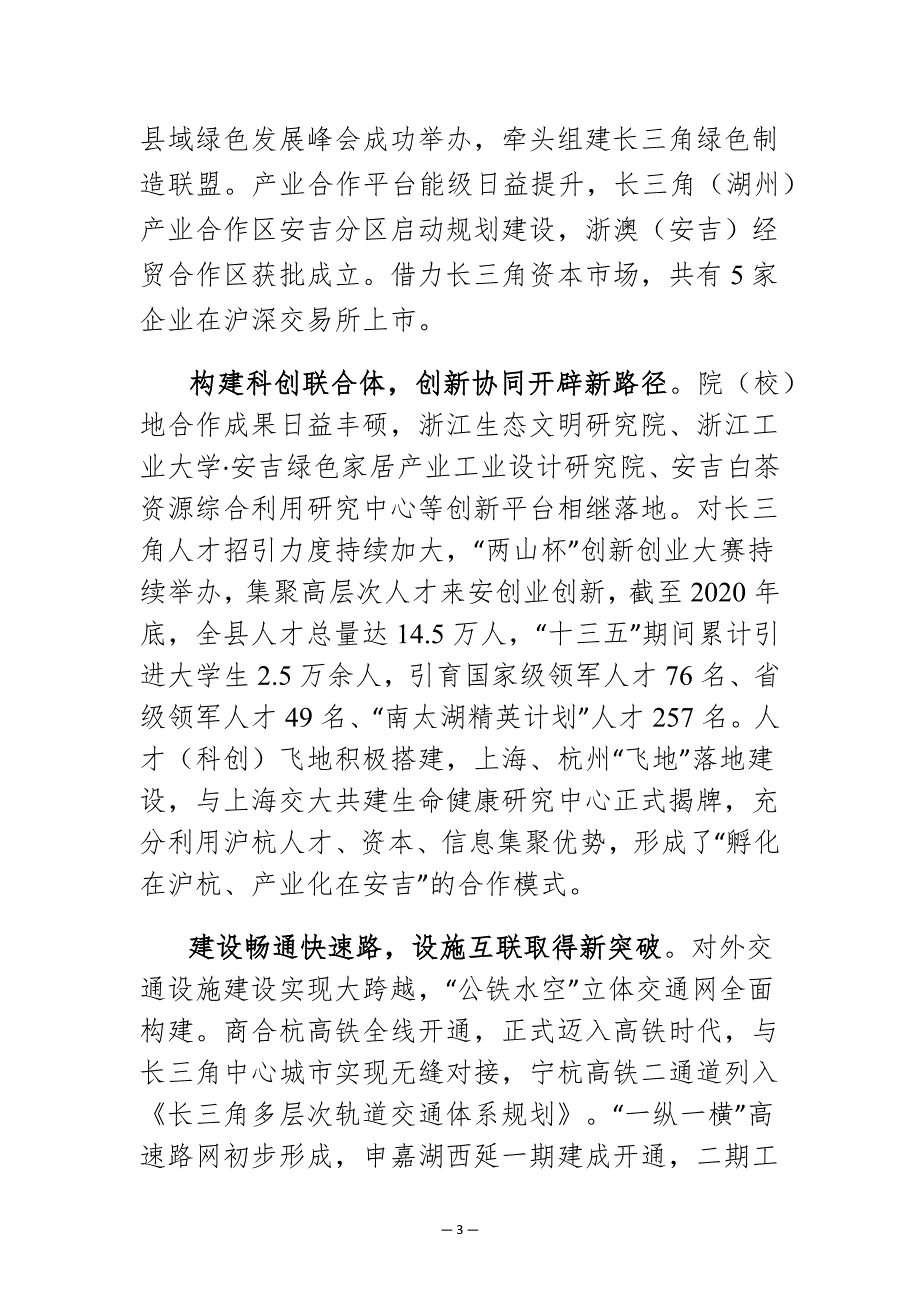 县域绿色发展峰会成功举办，牵头组建长三角绿色制
造联盟。产业合作平台能级日益提升，长三角（湖州）
产业合作区安吉分区启动规划建设，浙澳（安吉）经
贸合作区获批成立。借力长三角资本市场，共有 5 家
企业在沪深交易所上市。
构建科创联合体，创新协同开辟新路径。院（校）
地合作成果日益丰硕，浙江生态文明研究院、浙江工
业大学·安吉绿色家居产业工业设计研究院、安吉白茶
资源综合利用研究中心等创新平台相继落地。对长三
角人才招引力度持续加大，“两山杯”创新创业大赛持
续举办，集聚高层次人才来安创业创新，截至 2020 年
底，全县人才总量达 14.5 万人，“十三五”期间累计引
进大学生 2.5 万余人，引育国家级领军人才 76 名、省
级领军人才 49 名、“南太湖精英计划”人才 257 名。人
才（科创）飞地积极搭建，上海、杭州“飞地”落地建
设，与上海交大共建生命健康研究中心正式揭牌，充
分利用沪杭人才、资本、信息集聚优势，形成了“孵化
在沪杭、产业化在安吉”的合作模式。
建设畅通快速路，设施互联取得新突破。对外交
通设施建设实现大跨越，“公铁水空”立体交通网全面
构建。商合杭高铁全线开通，正式迈入高铁时代，与
长三角中心城市实现无缝对接，宁杭高铁二通道列入
《长三角多层次轨道交通体系规划》。“一纵一横”高
速路网初步形成，申嘉湖西延一期建成开通，二期工
— 3 —